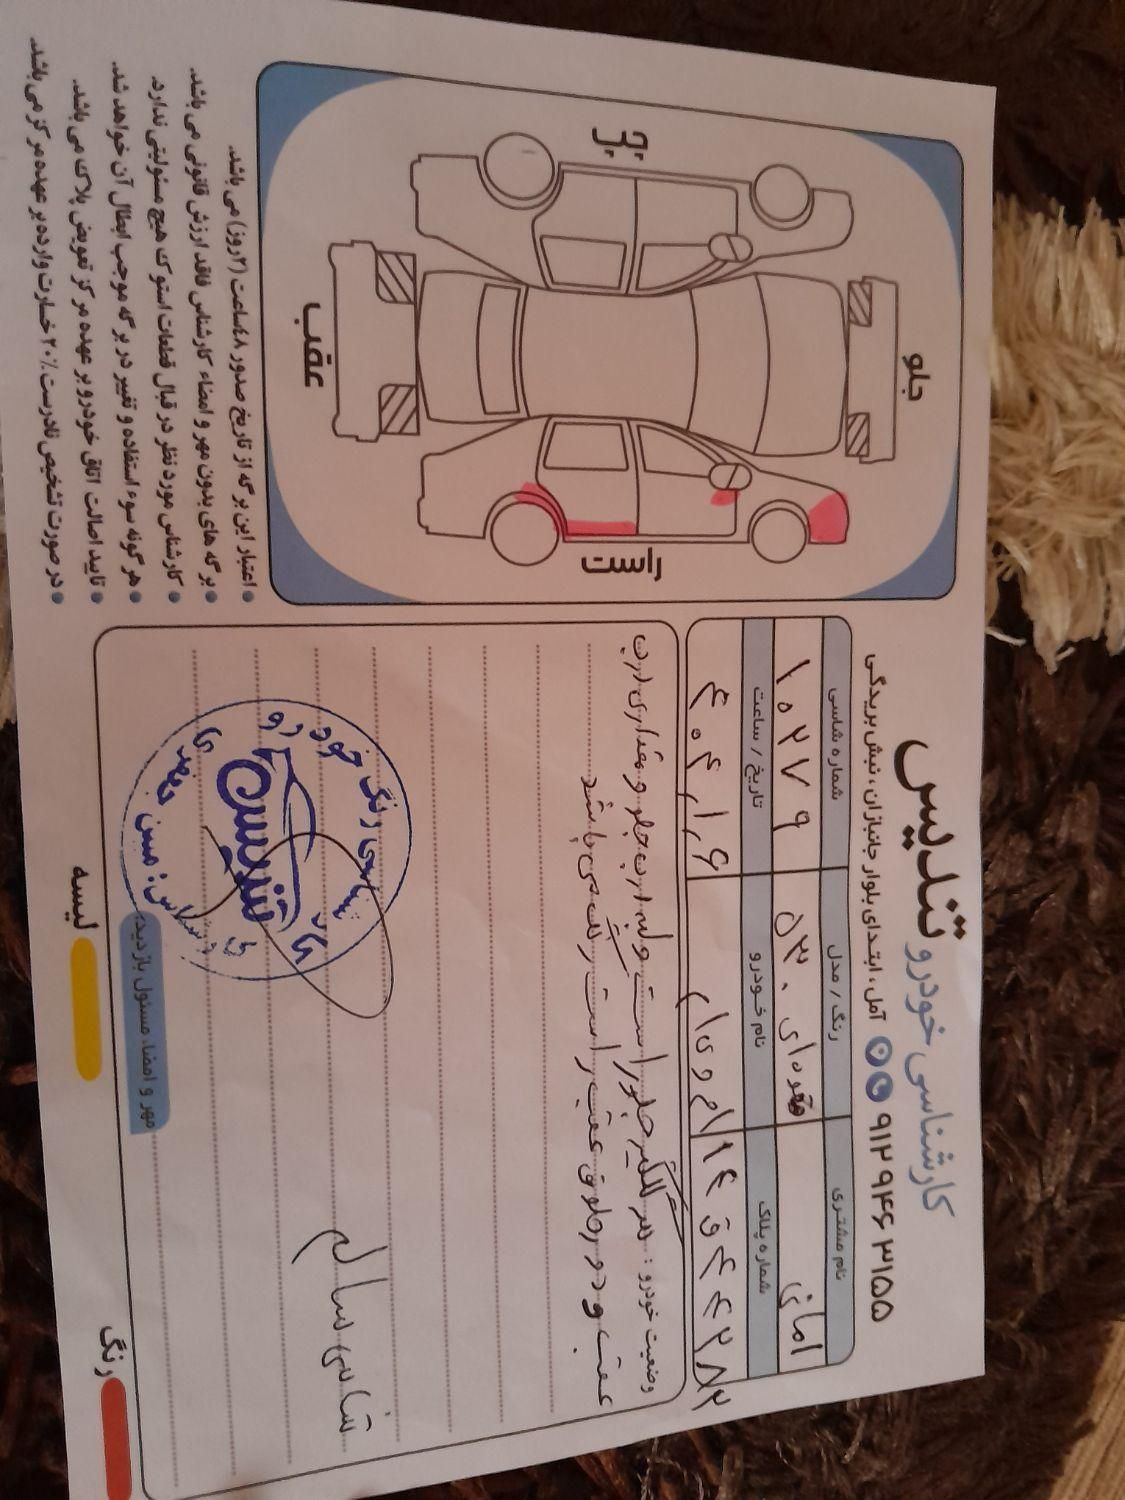 کارشناسی خودرو تندیس
آمل، ابتدای بلوار جانبازان، نبش بریدگی
۹۱۲ ۹۴۶ ۳۱۵۵
شماره شاسی
رنگ / مدل
نام مشتری
۱۰۲۷۹
نقره‌ای
امانی
تاریخ / ساعت
نام خودرو
شماره پلاک
۴۰۴,۱,۶
وضعیت خودرو : گلگیر جلو راست و لبه درب جلو و مقداری درب
عقب و دور چلوق عقب راست رنگ می باشد
شاسی سالم
مهر و امضاء مسئول بازدید:
کارشناسی رنگ خودرو
تندیس
لیسه
رنگ
جلو
چپ
راست
عقب
• اعتبار این برگه از تاریخ صدور ۴۸ساعت (۲روز) می باشد.
• برگه های بدون مهر و امضاء کارشناس فاقد ارزش قانونی می باشد.
• کارشناس مورد نظر در قبال قطعات استوک هیچ مسئولیتی ندارد.
• هر گونه سوء استفاده و تغییر در برگه موجب ابطال آن خواهد شد.
• تایید اصالت اتاق خودرو بر عهده مرکز تعویض پلاک می باشد.
• در صورت تشخیص نادرست ۲۰٪ خسارت وارده بر عهده مرکز می باشد.